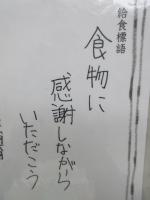 給食標語
食物に
感謝しながら
いただこう